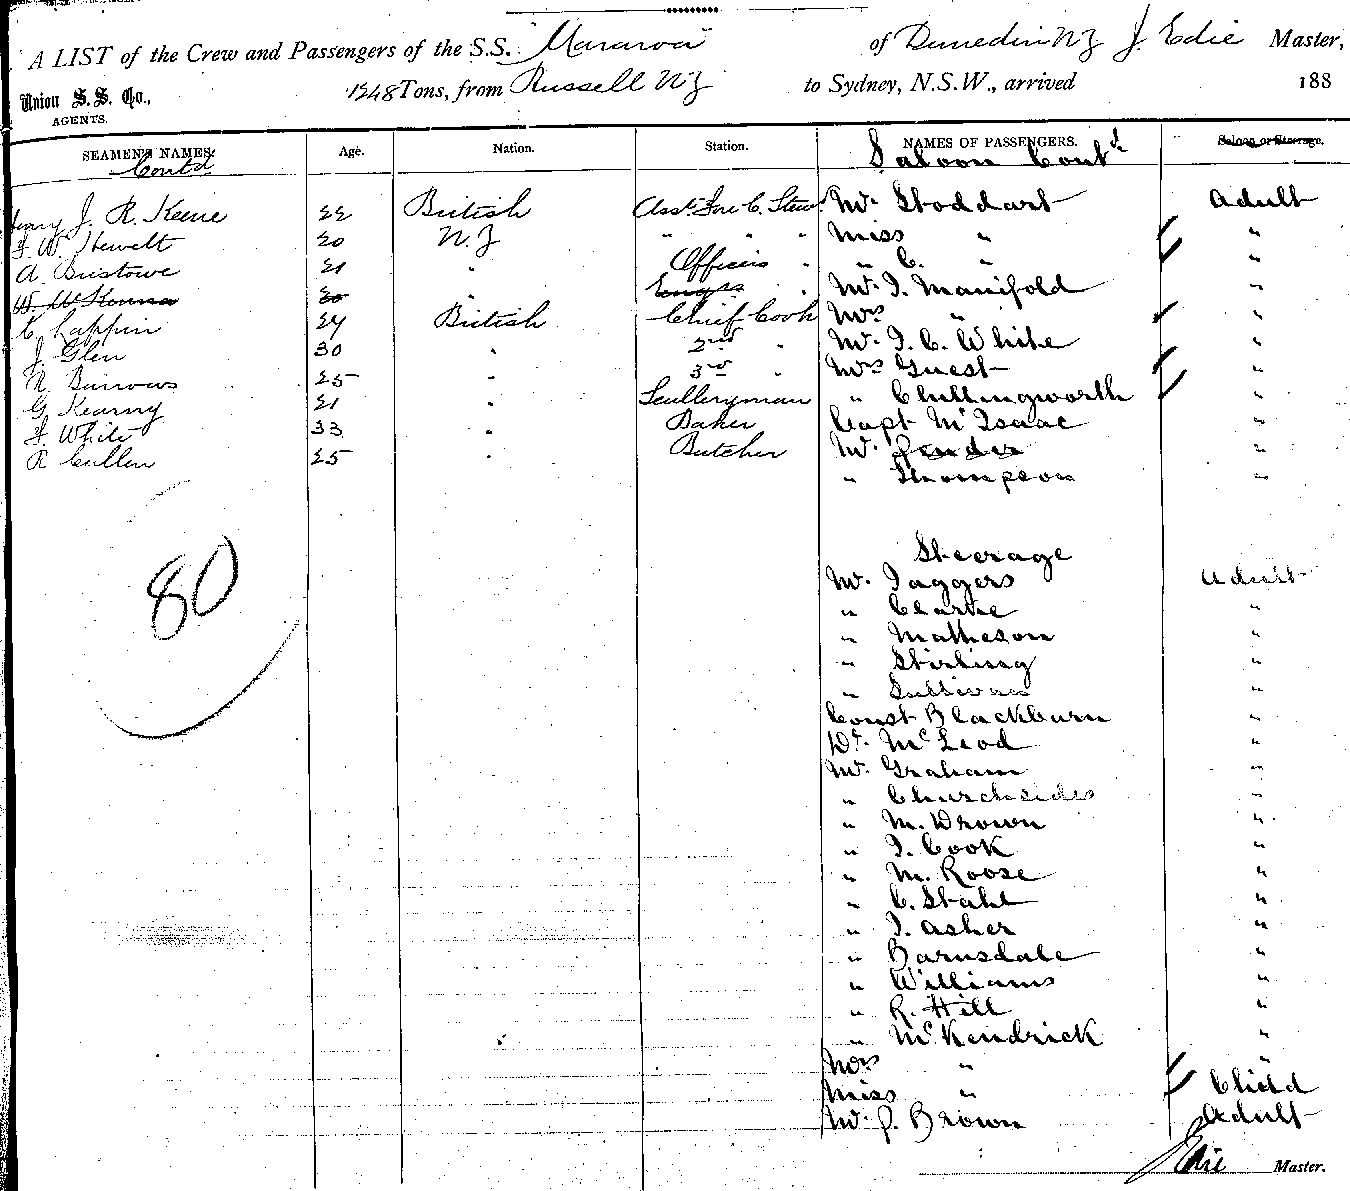 A LIST of the Crew and Passengers of the S.S. Mararoa of Dunedin NZ J. Edie Master,
Union S.S. Co., AGENTS. 1248 Tons, from Russell NZ to Sydney, N.S.W., arrived 188
SEAMEN'S NAMES. Contd Age. Nation. Station. NAMES OF PASSENGERS. Saloon Contd Saloon or Steerage.
J. R. Keene 22 British Asst. Fore C. Stew Mr. Stoddart Adult
F. W. Hewett 20 N.Z " " " Miss " "
A. Bristowe 21 " Officers " " C. " "
20 Engrs " Mr. J. Manifold "
C. Lappin 24 British Chief Cook Mrs " "
J. Glen 30 " 2nd " Mr. J. C. White "
R. Burrows 25 " 3rd " Mrs Guest "
G. Kearny 21 " Sculleryman " Chillingworth "
F. White 33 " Baker Capt McIsaac "
R Cullen 25 " Butcher Mr. "
" Thompson "
80
Steerage
Mr. Jaggers Adult
" Clarke "
" Matheson "
" Stirling "
" Sullivan "
Const Blackburn "
Dr. McLeod "
Mr. Graham "
" Churchsides "
" M. Brown "
" J. Cook "
" M. Roose "
" C. Stahl "
" J. Asher "
" Barnsdale "
" Williams "
" R. Hill "
" McKendrick "
Mrs " "
Miss " Child
Mr. J. Brown Adult
J Edie Master.